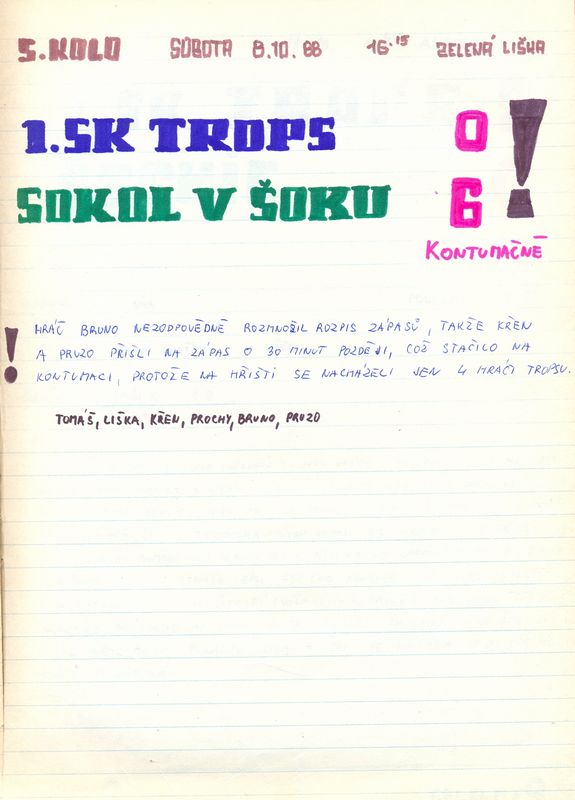 5. KOLO SOBOTA 8.10.88 16.15 ZELENÁ LIŠKA
1.SK TROPS 0 !
SOKOL V ŠOKU 6
KONTUMAČNĚ
! HRÁČ BRUNO NEZODPOVĚDNĚ ROZMNOŽIL ROZPIS ZÁPASŮ, TAKŽE KŘEN
A PRUZO PŘIŠLI NA ZÁPAS O 30 MINUT POZDĚJI, COŽ STAČILO NA
KONTUMACI, PROTOŽE NA HŘIŠTI SE NACHÁZELI JEN 4 HRÁČI TROPSU.
TOMÁŠ, LIŠKA, KŘEN, PROCHY, BRUNO, PRUZO